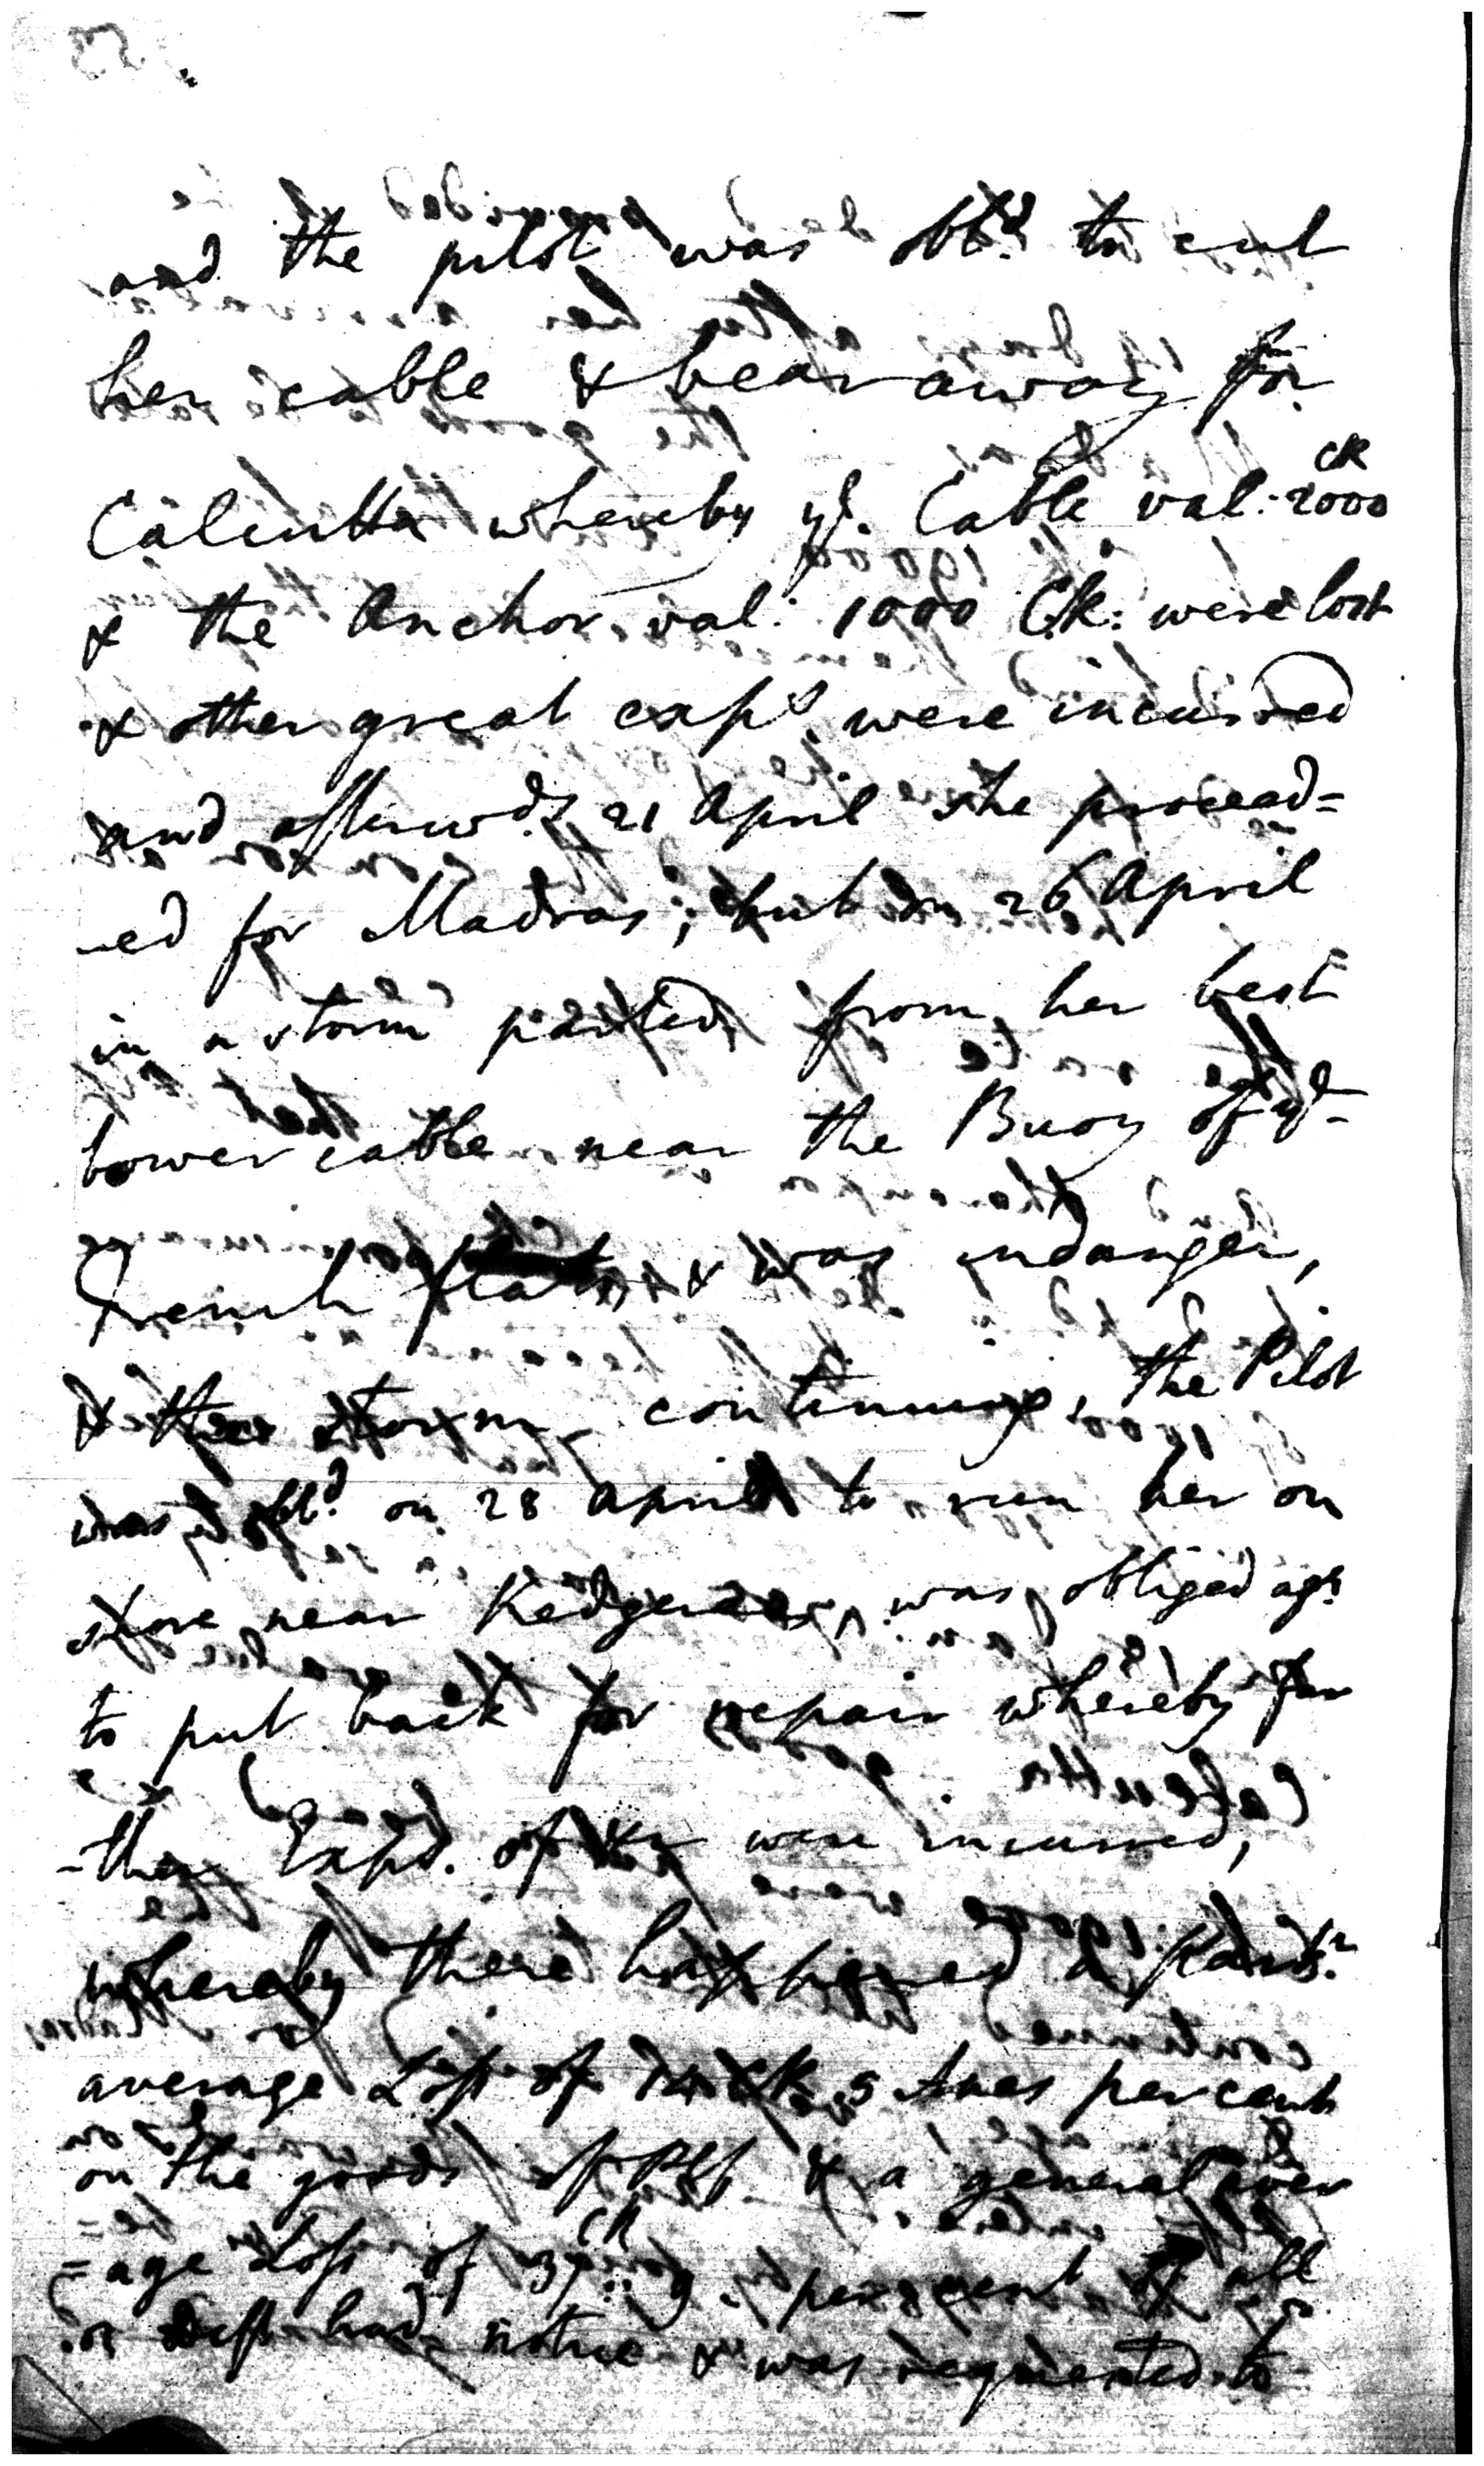 and the pilot was obl.d to cut
her cable & bear away for
Calcutta whereby yd. Cable val: CR 2000
& the Anchor val: 1000 CR: were lost
& other great exps were incurred
and afterwds 21 April she proceed=
-ed for Madras; but on 26 April
in a storm parted from her best
bower cable near the Buoy of yd-
French flats & was indanger,
& the storm continuing, the Pilot
was obl.d on 28 April to run her on
shore near Kedgeree, was obliged agn
to put back for repair whereby fur
-ther Exps. of were incurred,
whereby there happened a
average Loss of 5 Anas per cent
on the goods of Plff & a general aver
=age Loss of CR per cent of all
Deft had notice & was requested to